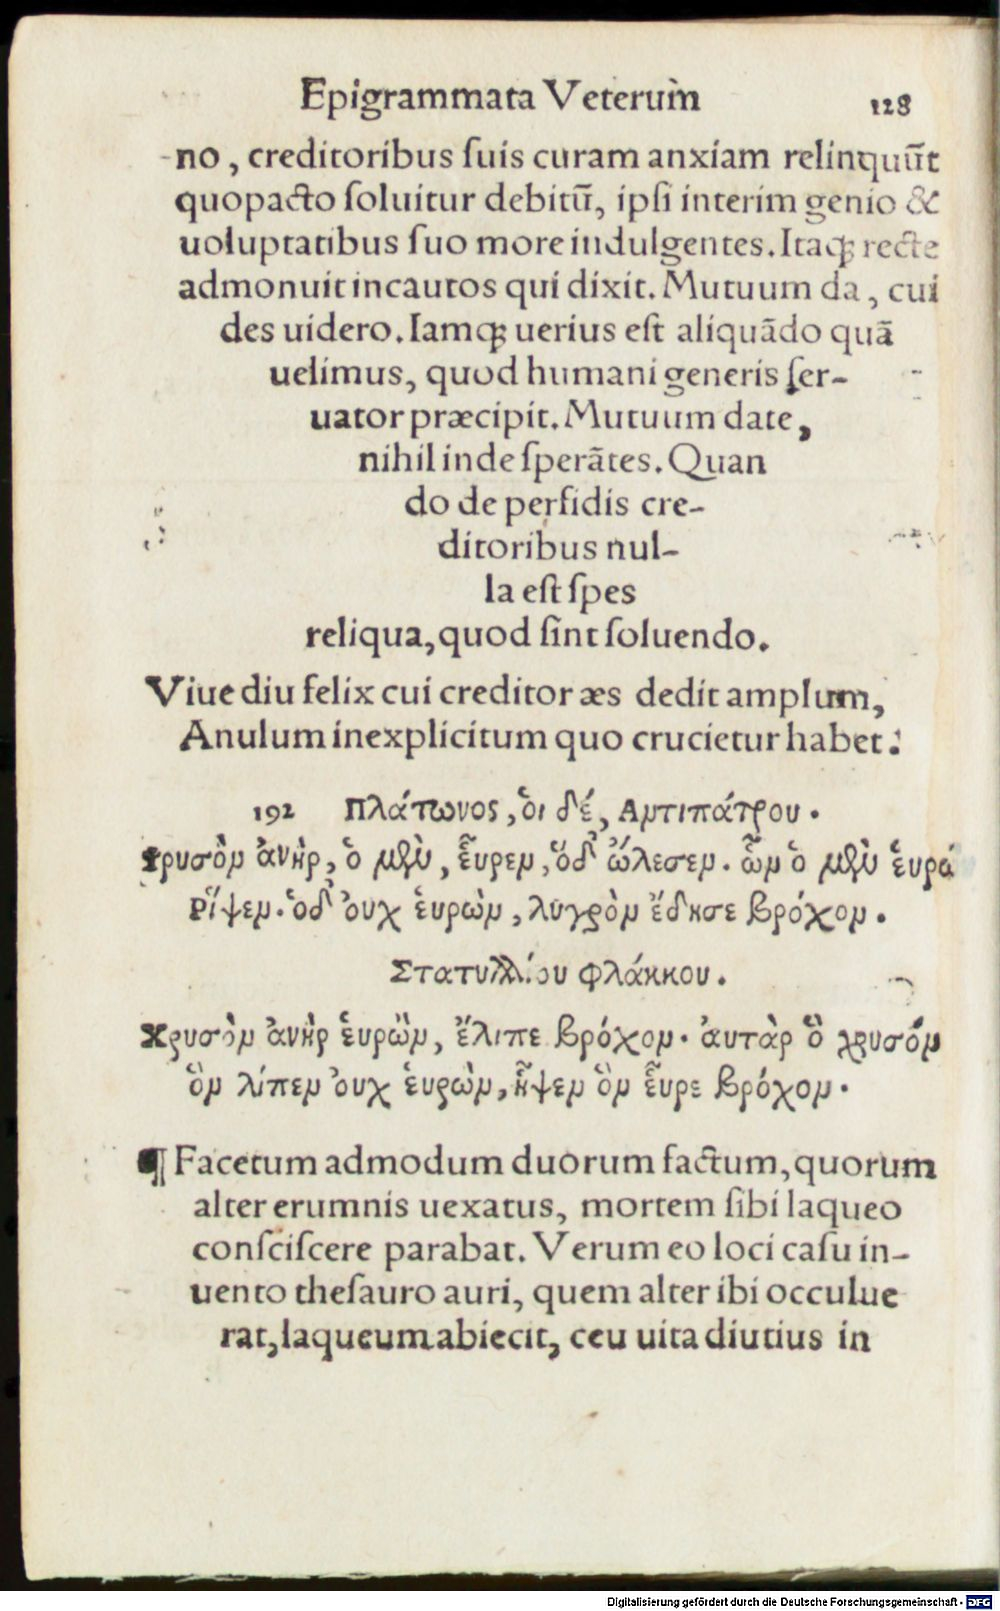 Epigrammata Veterum 128
no, creditoribus ſuis curam anxiam relinquūt
quopacto ſoluitur debitū, ipſi interim genio &
uoluptatibus ſuo more indulgentes. Itaqꝫ recte
admonuit incautos qui dixit. Mutuum da, cui
des uidero. Iamqꝫ uerius eſt aliquādo quā
uelimus, quod humani generis ſer-
uator præcipit. Mutuum date,
nihil inde ſperātes. Quan
do de perfidis cre-
ditoribus nul-
la eſt ſpes
reliqua, quod ſint ſoluendo.
Viue diu felix cui creditor æs dedit amplum,
Anulum inexplicitum quo crucietur habet.
192 Πλάτωνος, ὁι δέ, Αντιπάτρου.
Χρυσὸν ἀνὴρ, ὁ μὲν, ἕυρεν, ὅδ' ὤλεσεν. ὧν ὁ μὲν ἑυρὼ
Ρίψεν. ὁδ' ὀυχ ἑυρὼν, λυγρὸν ἔδησε βρόχον.
Στατυλλίου φλάκκου.
Χρυσὸν ἀνὴρ ἑυρὼν, ἔλιπε βρόχον. ἀυτὰρ ὃ χρυσὸν
ὃν λίπεν ὀυχ ἑυρὼν, ἧψεν ὃν ἕυρε βρόχον.
¶ Facetum admodum duorum factum, quorum
alter erumnis uexatus, mortem ſibi laqueo
conſciſcere parabat. Verum eo loci caſu in-
uento theſauro auri, quem alter ibi occulue
rat, laqueum abiecit, ceu uita diutius in
Digitalisierung gefördert durch die Deutsche Forschungsgemeinschaft - DFG